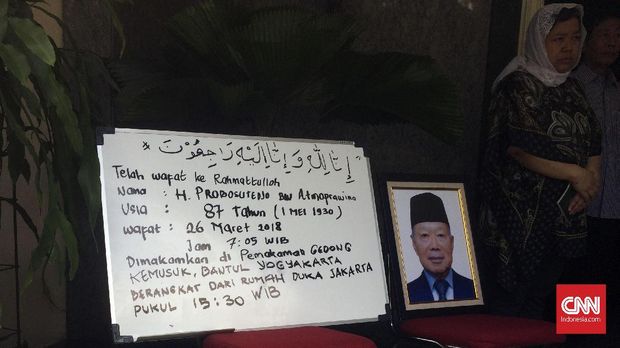 إنا لله وإنا إليه راجعون
Telah wafat ke Rahmatulloh
Nama : H. PROBOSUTEDJO BIN Atmoprawiro
Usia : 87 Tahun (1 MEI 1930)
wafat : 26 Maret 2018
Jam 7:05 WIB
Dimakamkan di Pemakaman GEDONG
KEMUSUK, BANTUL YOGYAKARTA
BERANGKAT DARI RUMAH DUKA JAKARTA
PUKUL 15:30 WIB
CNN
Indonesia.com